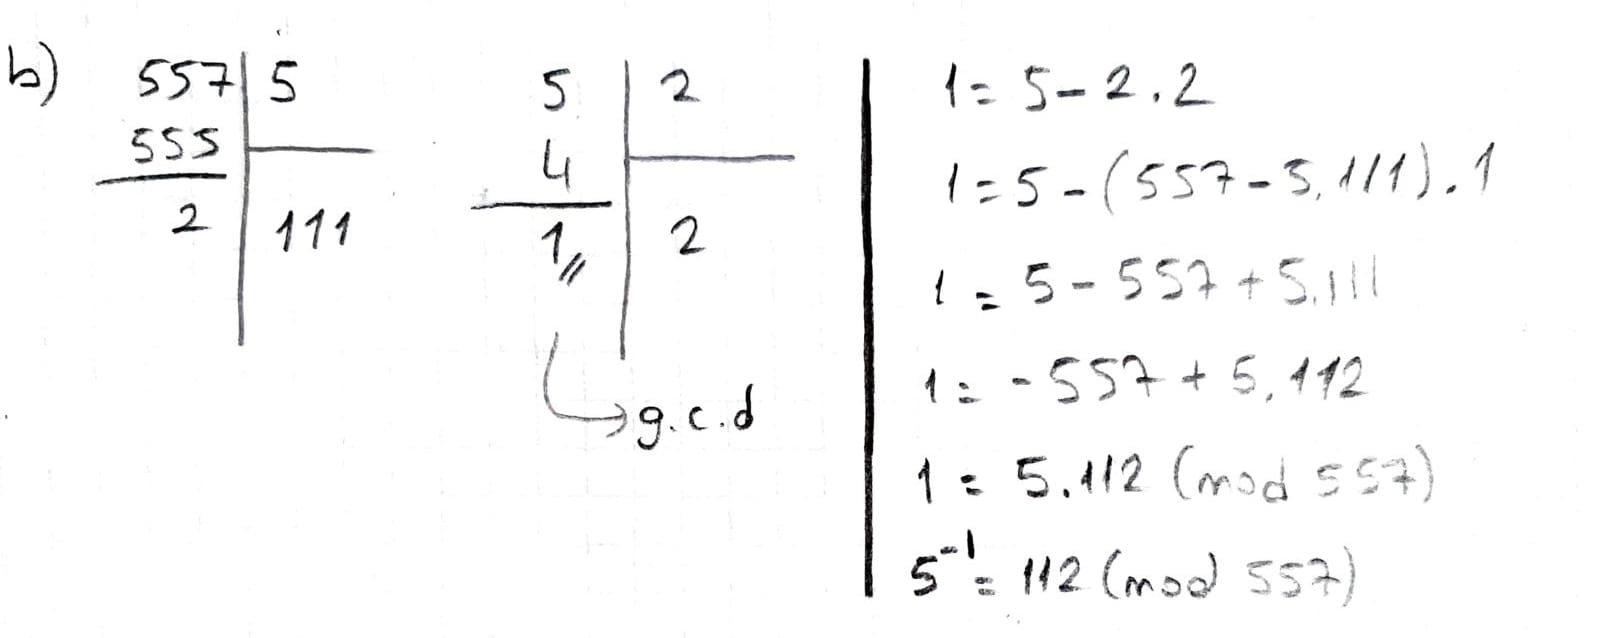 b)
557 5
555
2 111
5 2
4
1 2
g.c.d
1 = 5 - 2.2
1 = 5 - (557 - 5.111).1
1 = 5 - 557 + 5.111
1 = - 557 + 5.112
1 = 5.112 (mod 557)
5⁻¹ = 112 (mod 557)